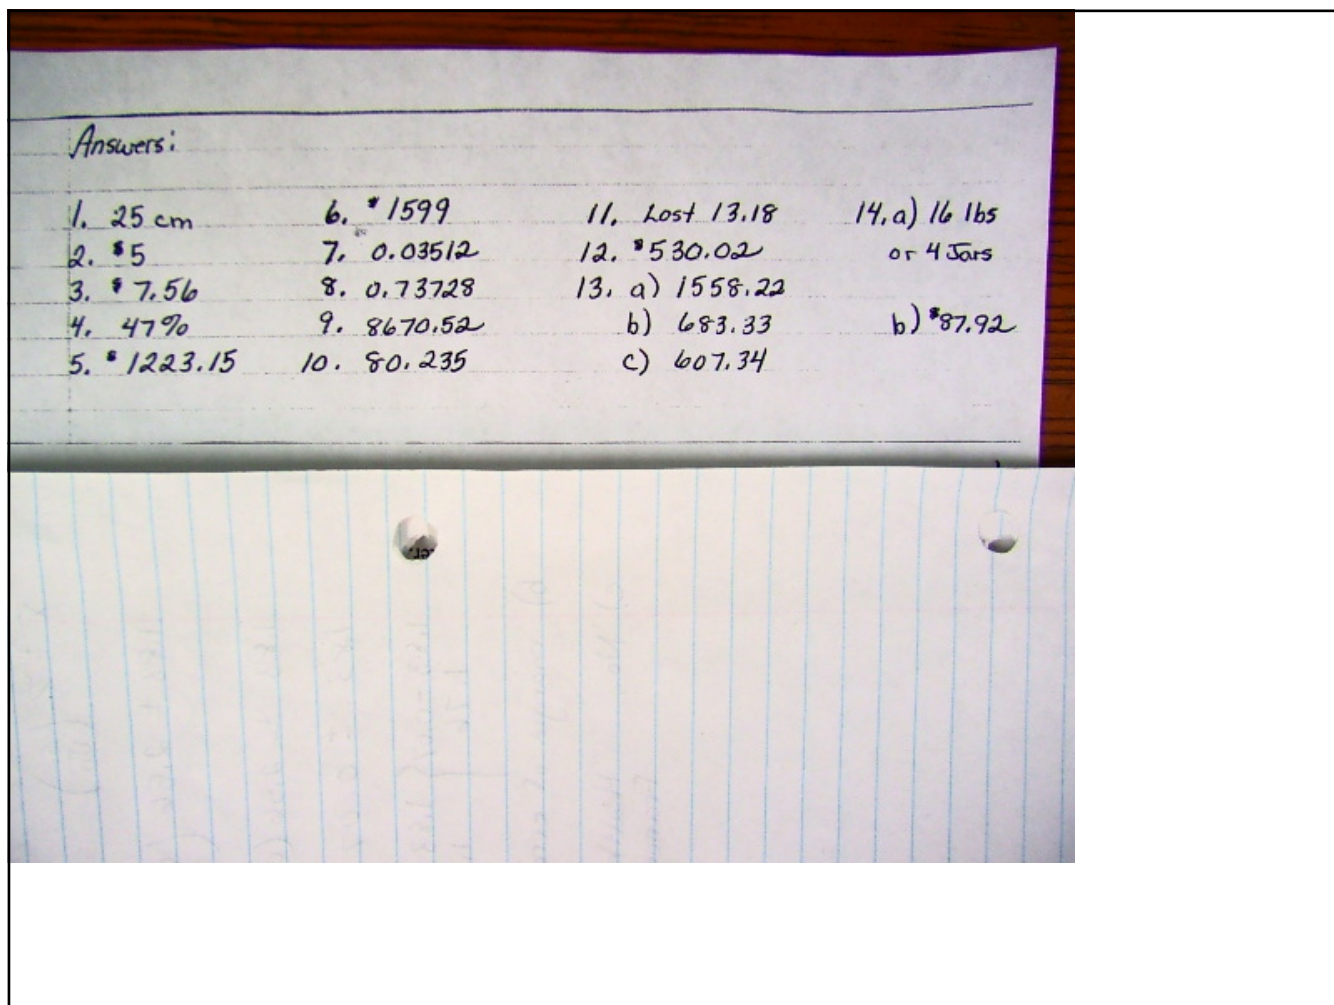 Answers:
1. 25 cm
2. $5
3. $7.56
4. 47%
5. $1223.15
6. $1599
7. 0.03512
8. 0.73728
9. 8670.52
10. 80.235
11. Lost 13.18
12. $530.02
13. a) 1558.22
b) 683.33
c) 607.34
14. a) 16 lbs
or 4 Jars
b) $87.92